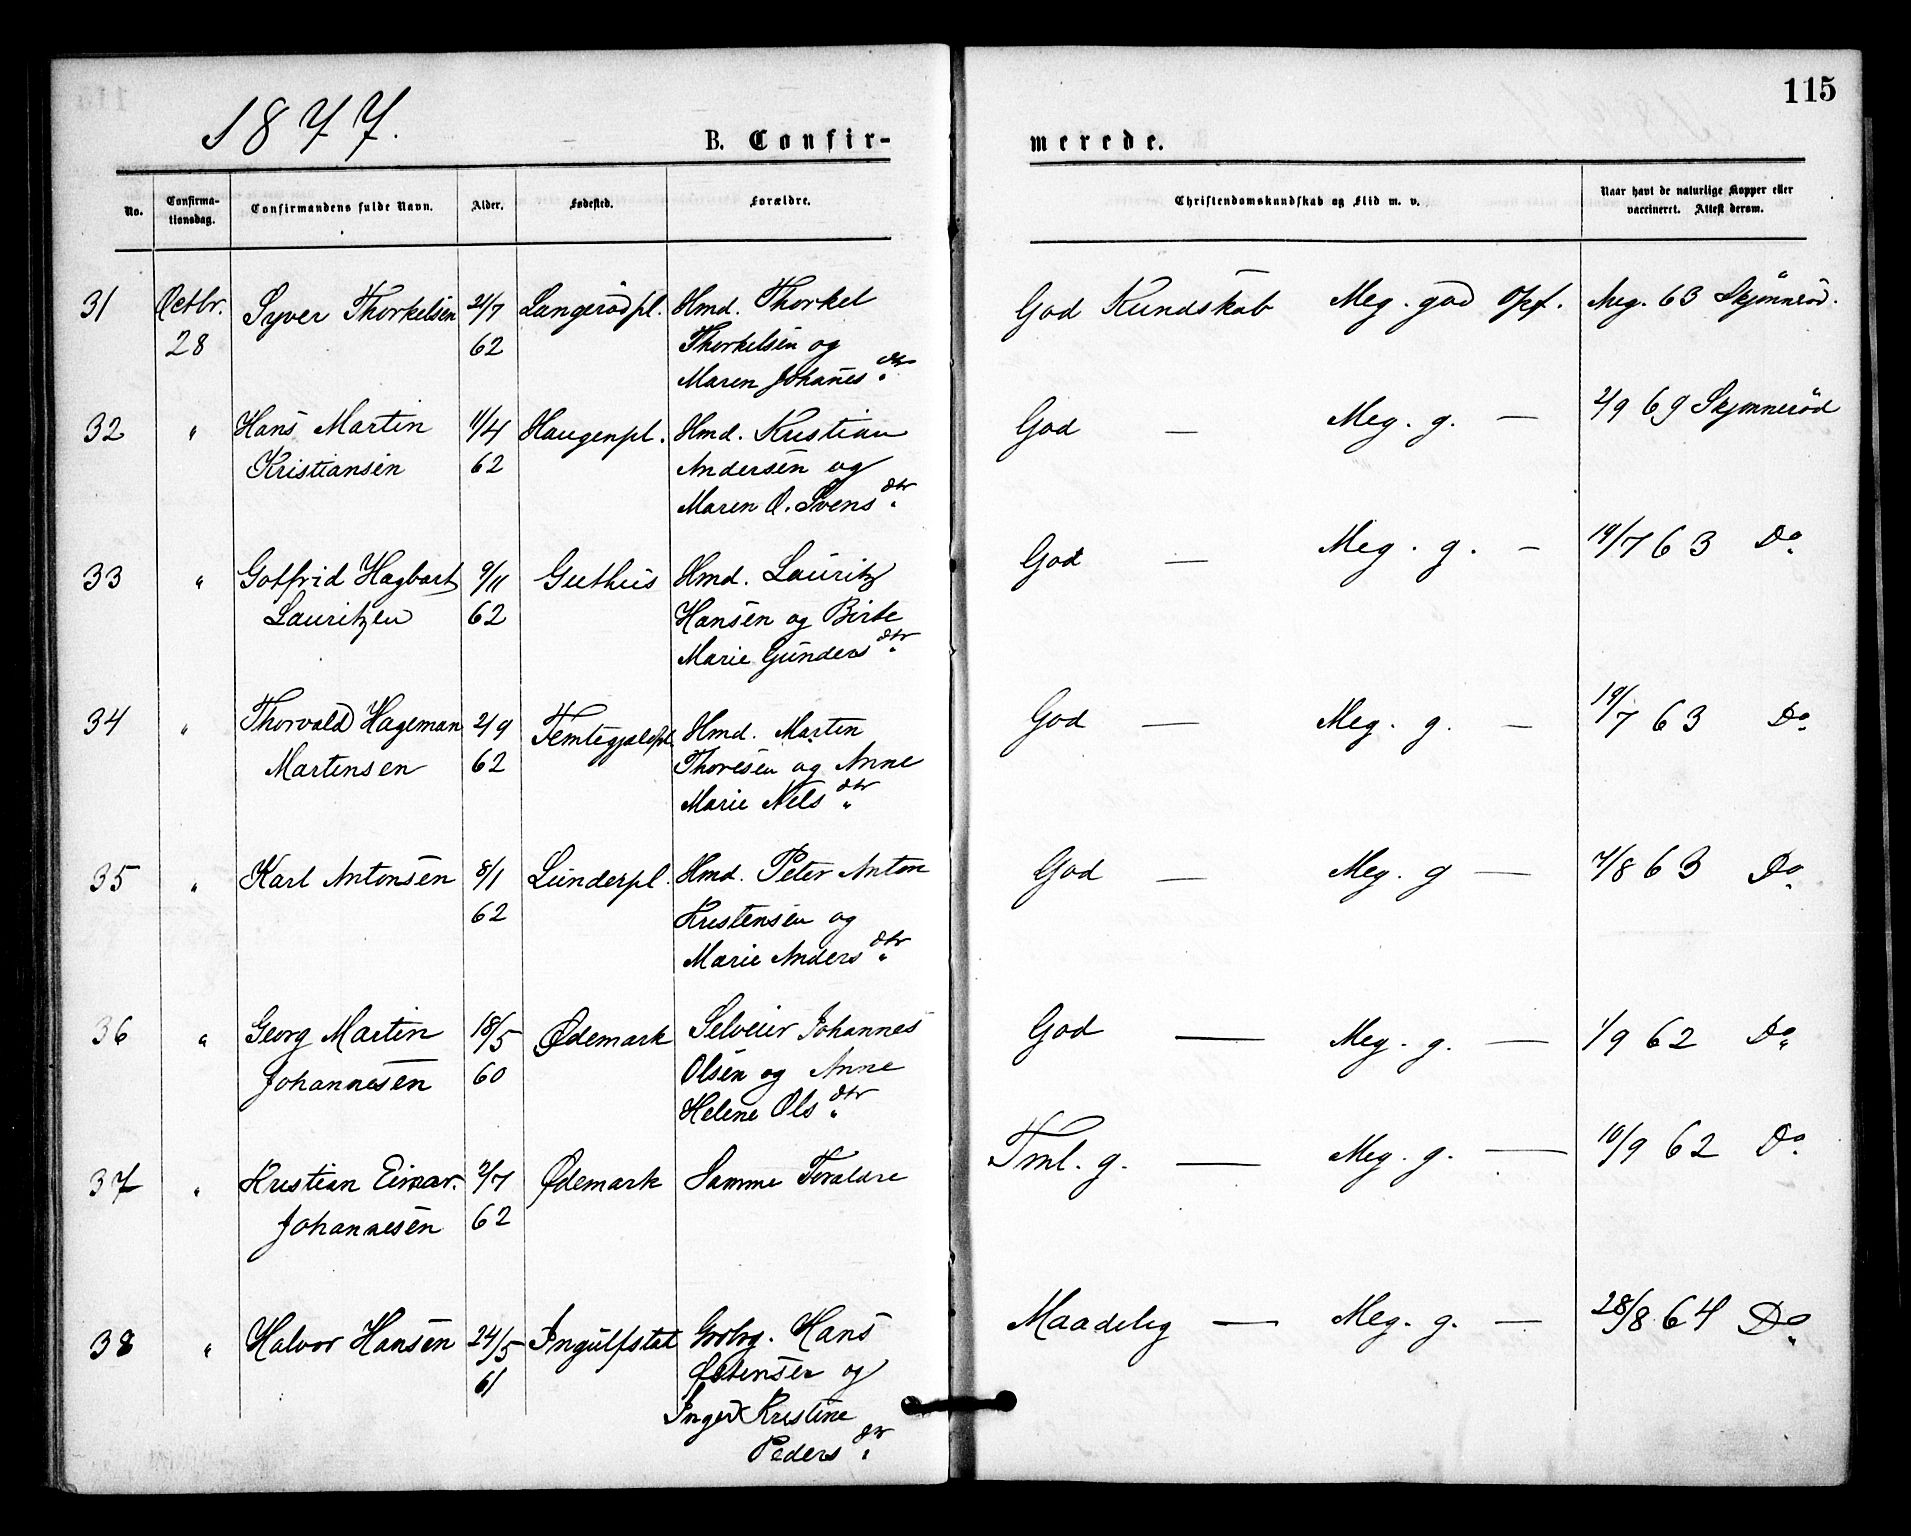 115
1877.
B. Confir-
merede.
No.
Confirma-
tionsdag.
Confirmandens fulde Navn.
Alder.
Fødested.
Forældre.
Christendomskundskab og Flid m. v.
Naar havt de naturlige Kopper eller
vaccineret. Attest derom.
31 Octbr. Syver Thorkelsen 21/7 Langerödpl. Hmd. Thorkel God Kundskab Meg. god Opf. Aug. 63 Skjønneröd.
28 62 Thorkelsen og
Maren Johanes dtr
32 " Hans Martin 11/4 Haugenpl. Hmd. Kristian God — Meg. g. — 2/9 69 Skjønneröd
Kristiansen 62 Andersen og
Maren O. Svens dtr
33 " Gotfrid Hagbart 9/11 Guthus Hmd. Lauritz God — Meg. g. — 19/7 63 Do
Lauritzen 62 Hansen og Birte
Marie Gunders dtr
34 " Thorvald Hageman 2/9 Hmd. Martin God — Meg. g. — 19/7 63 Do
Martensen 62 Thoresen og Anne
Marie Nels dtr
35 " Karl Antonsen 8/1 Lunderpl. Hmd. Peter Anton God — Meg. g — 7/8 63 Do
62 Kristensen og
Marie Anders dtr
36 " Georg Martin 18/5 Ødemark Selveier Johannes God — Meg. g. — 1/9 62 Do
Johannesen 60 Olsen og Anne
Helene Ols dtr
37 " Kristian Einar. 2/7 Ødemark Samme Foraldre Tml. g. — Meg. g. — 10/9 62 Do
Johannesen 62
38 " Halvor Hansen 24/5 Ingulfstat Grbrg. Hans Maadelig — Meg. g. — 28/8 64 Do
61 og
Inger Kristine
Peders dtr